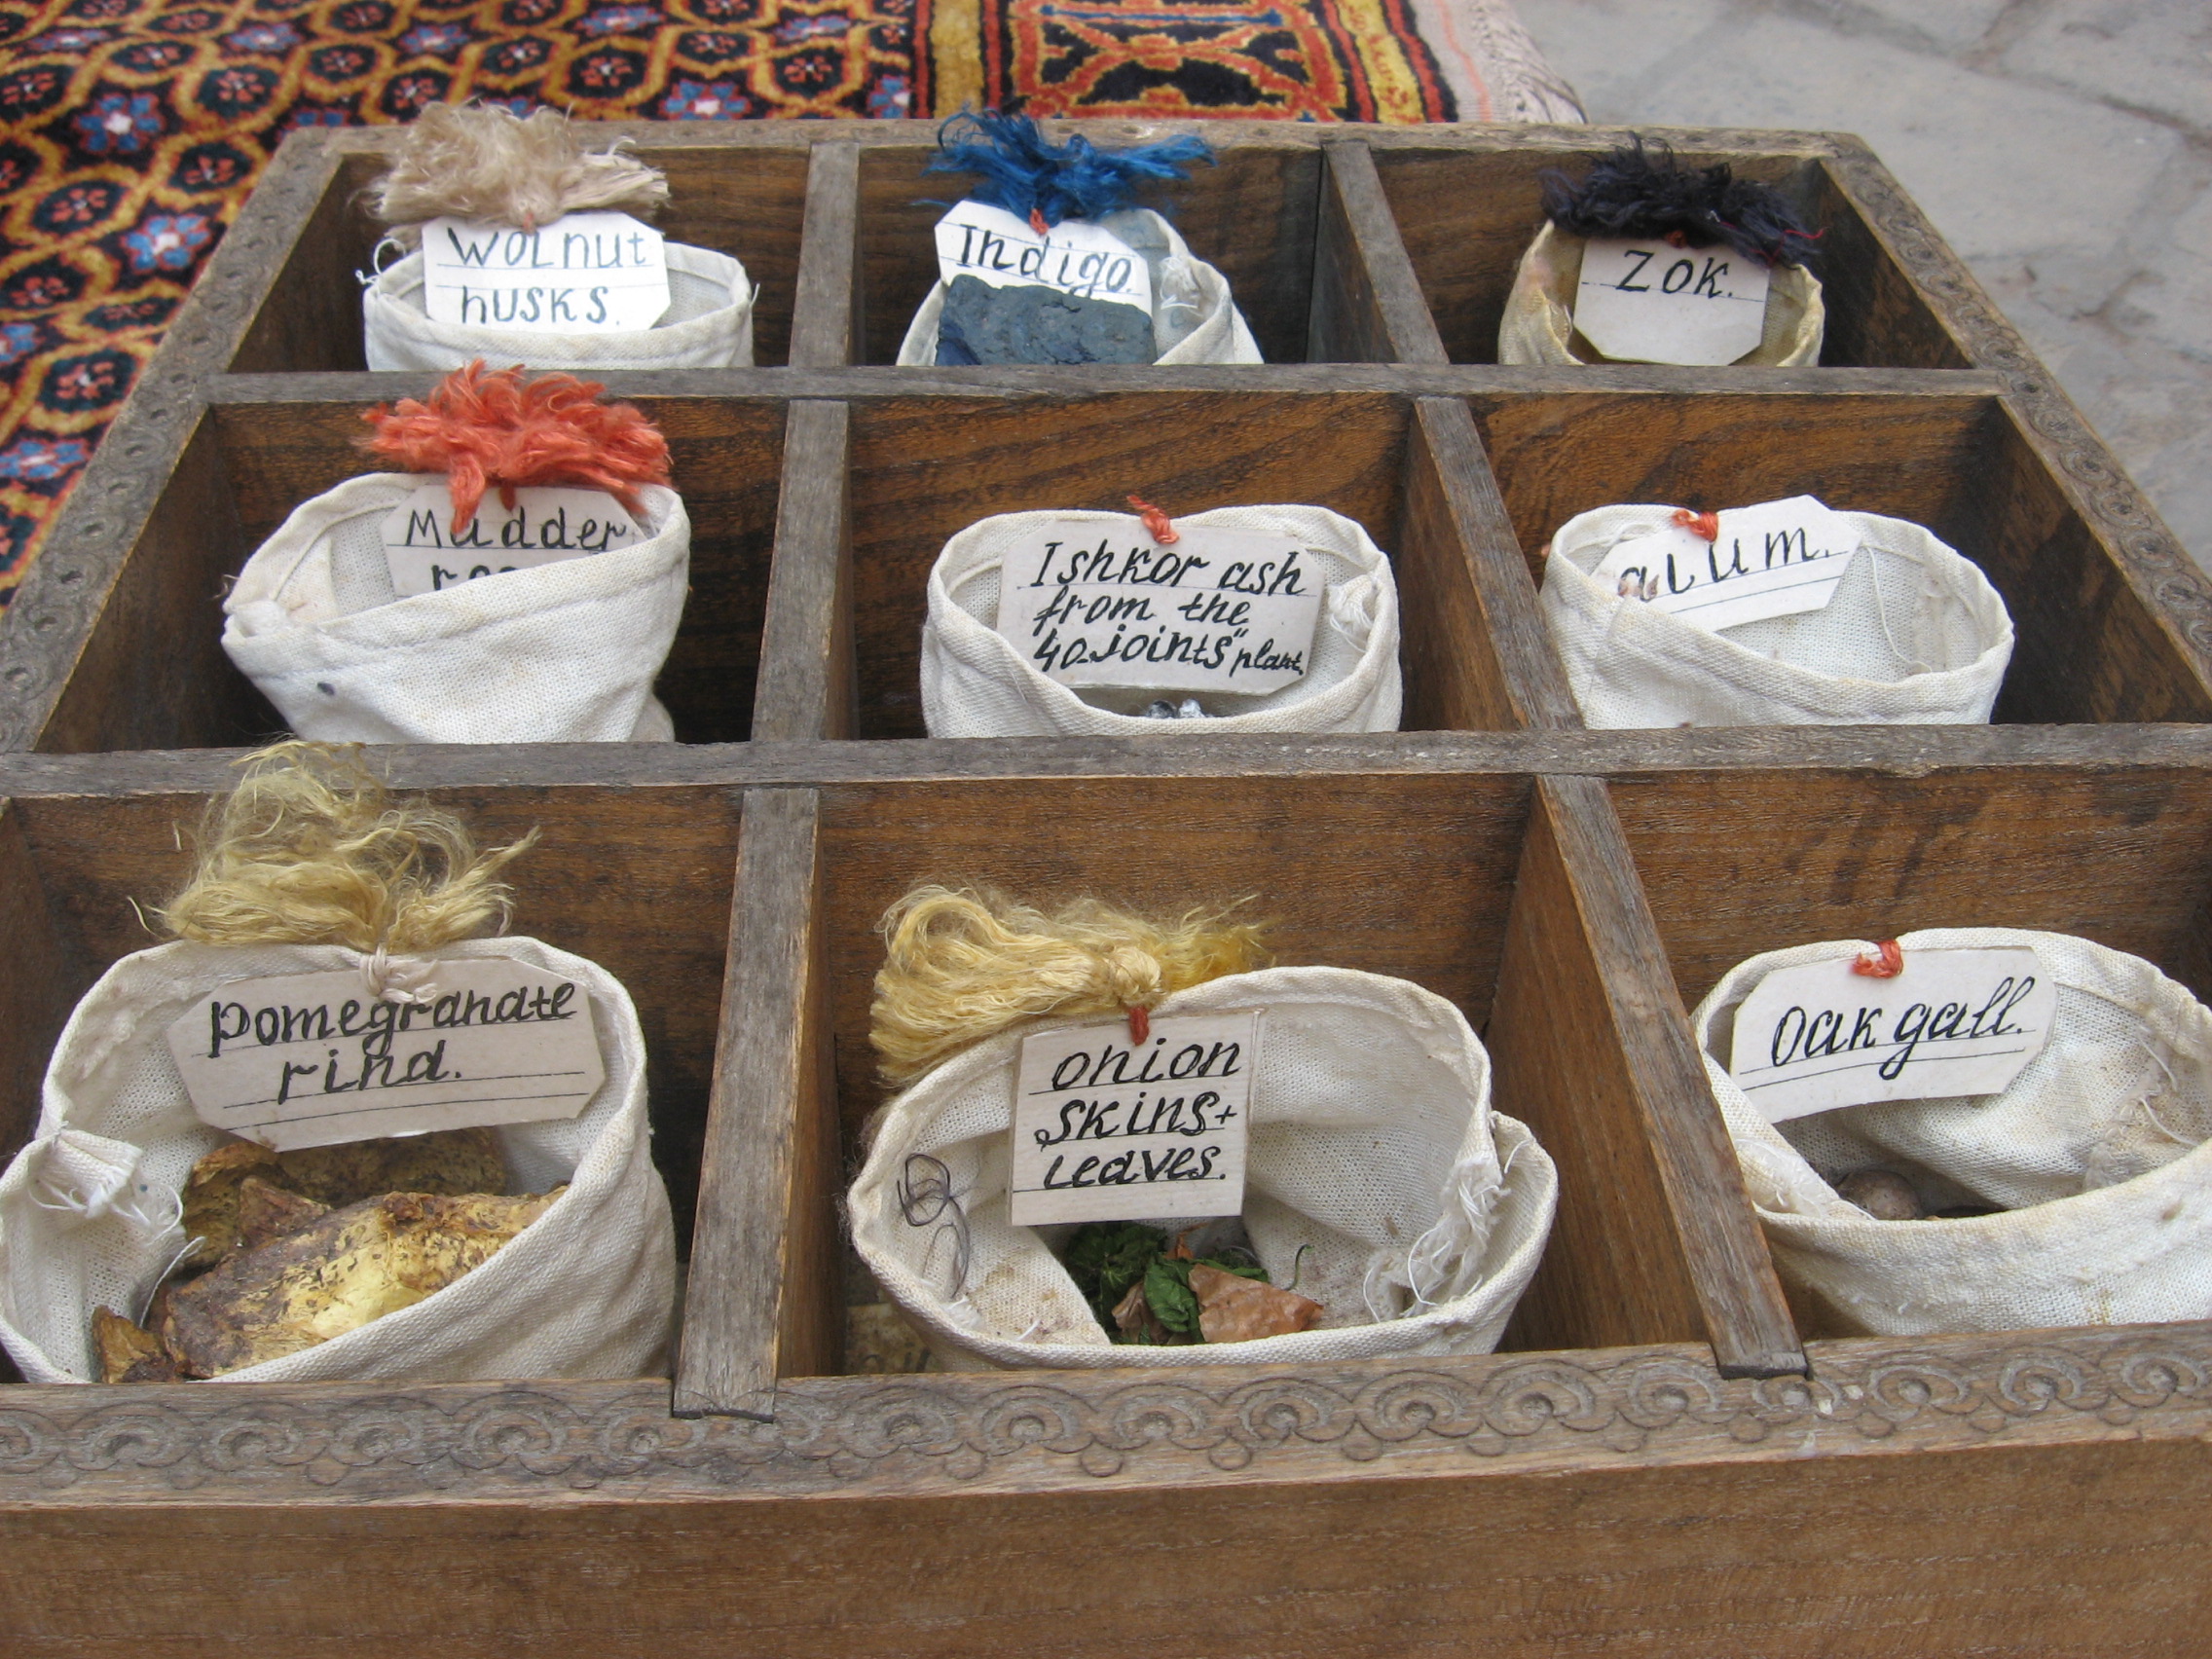 Wolnut
husks.
Indigo.
Zok.
Madder
Ishkor ash
from the
"40 joints" plant
alum.
pomegranate
rind.
onion
skins+
leaves.
Oak gall.